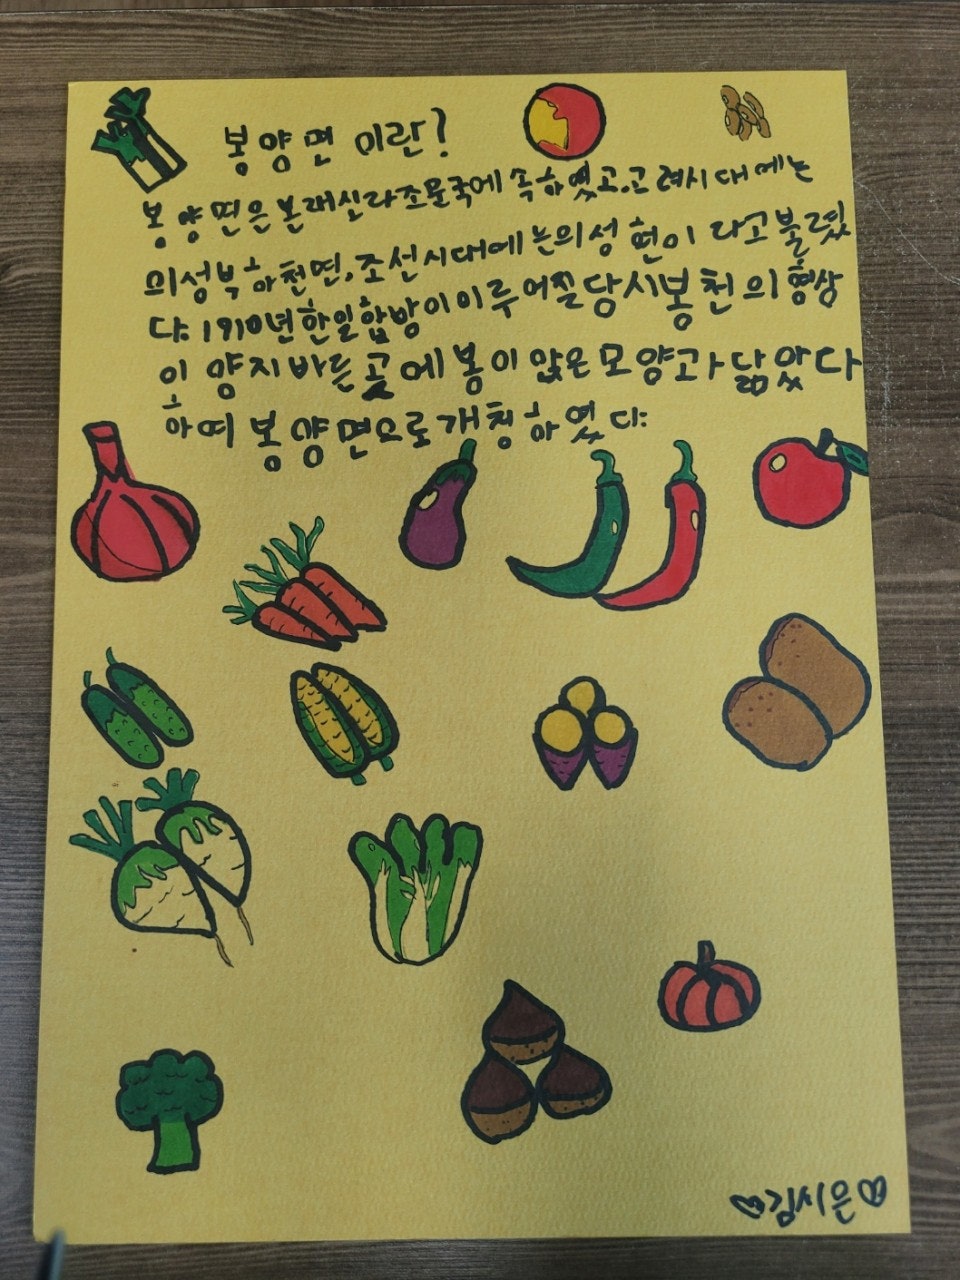 봉양면 이란?
봉양면은 본래신라조문국에 속하였고,고려시대에는
의성북하천면,조선시대에는의성현이라고불렸
다. 1910년한일합방이이루어질당시봉천의형상
이 양지바른곳에봉이앉은모양과닮았다
하여 봉양면으로개칭하였다.
♡김시은♡